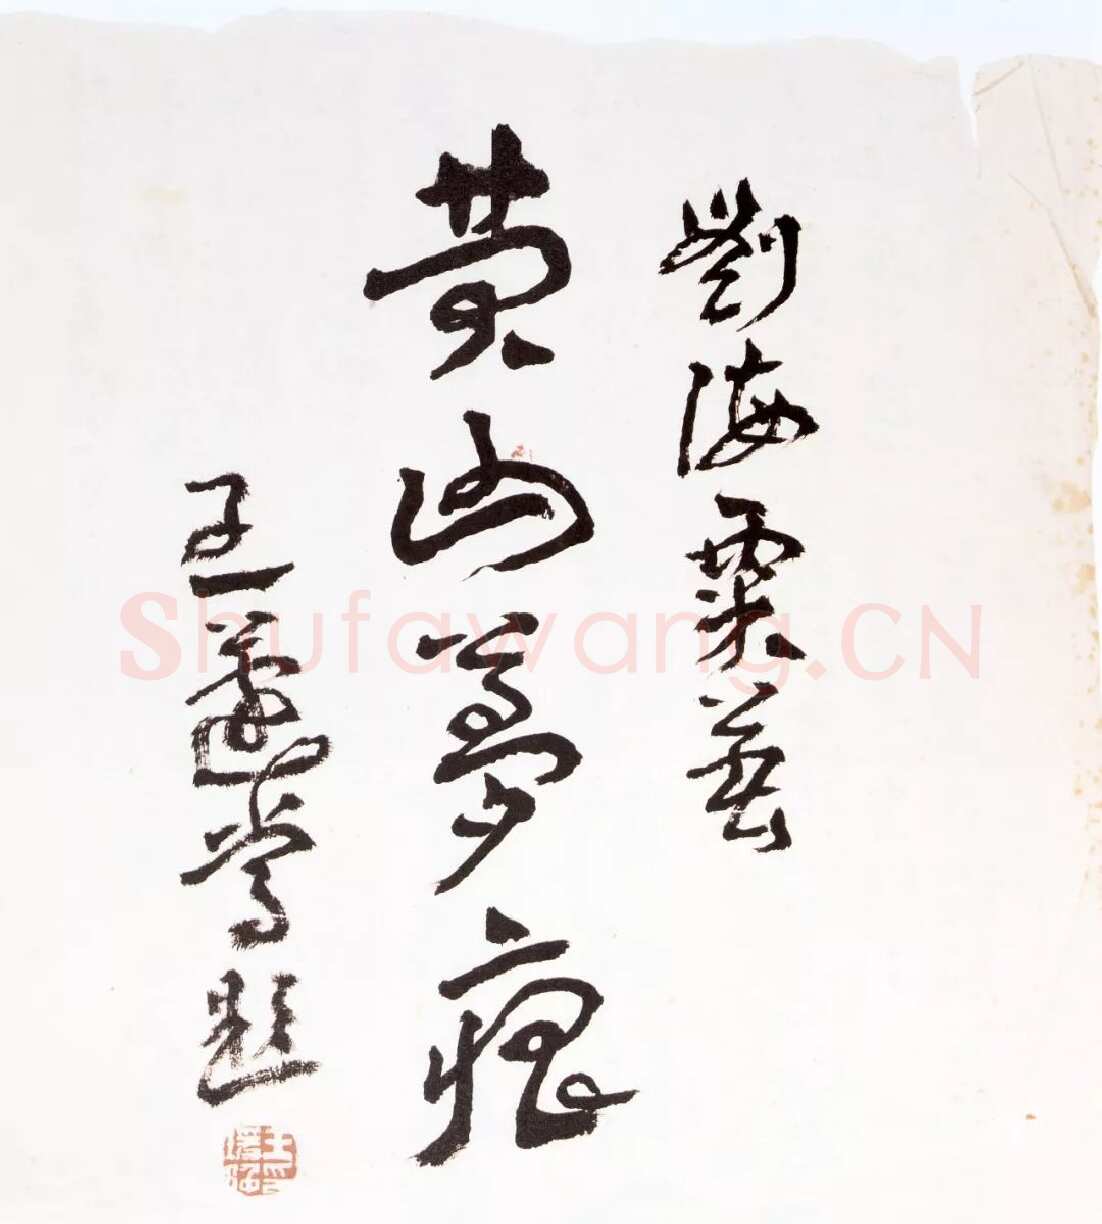 劉海粟著
黄山夢痕
王蘧常題
Shufawang.CN